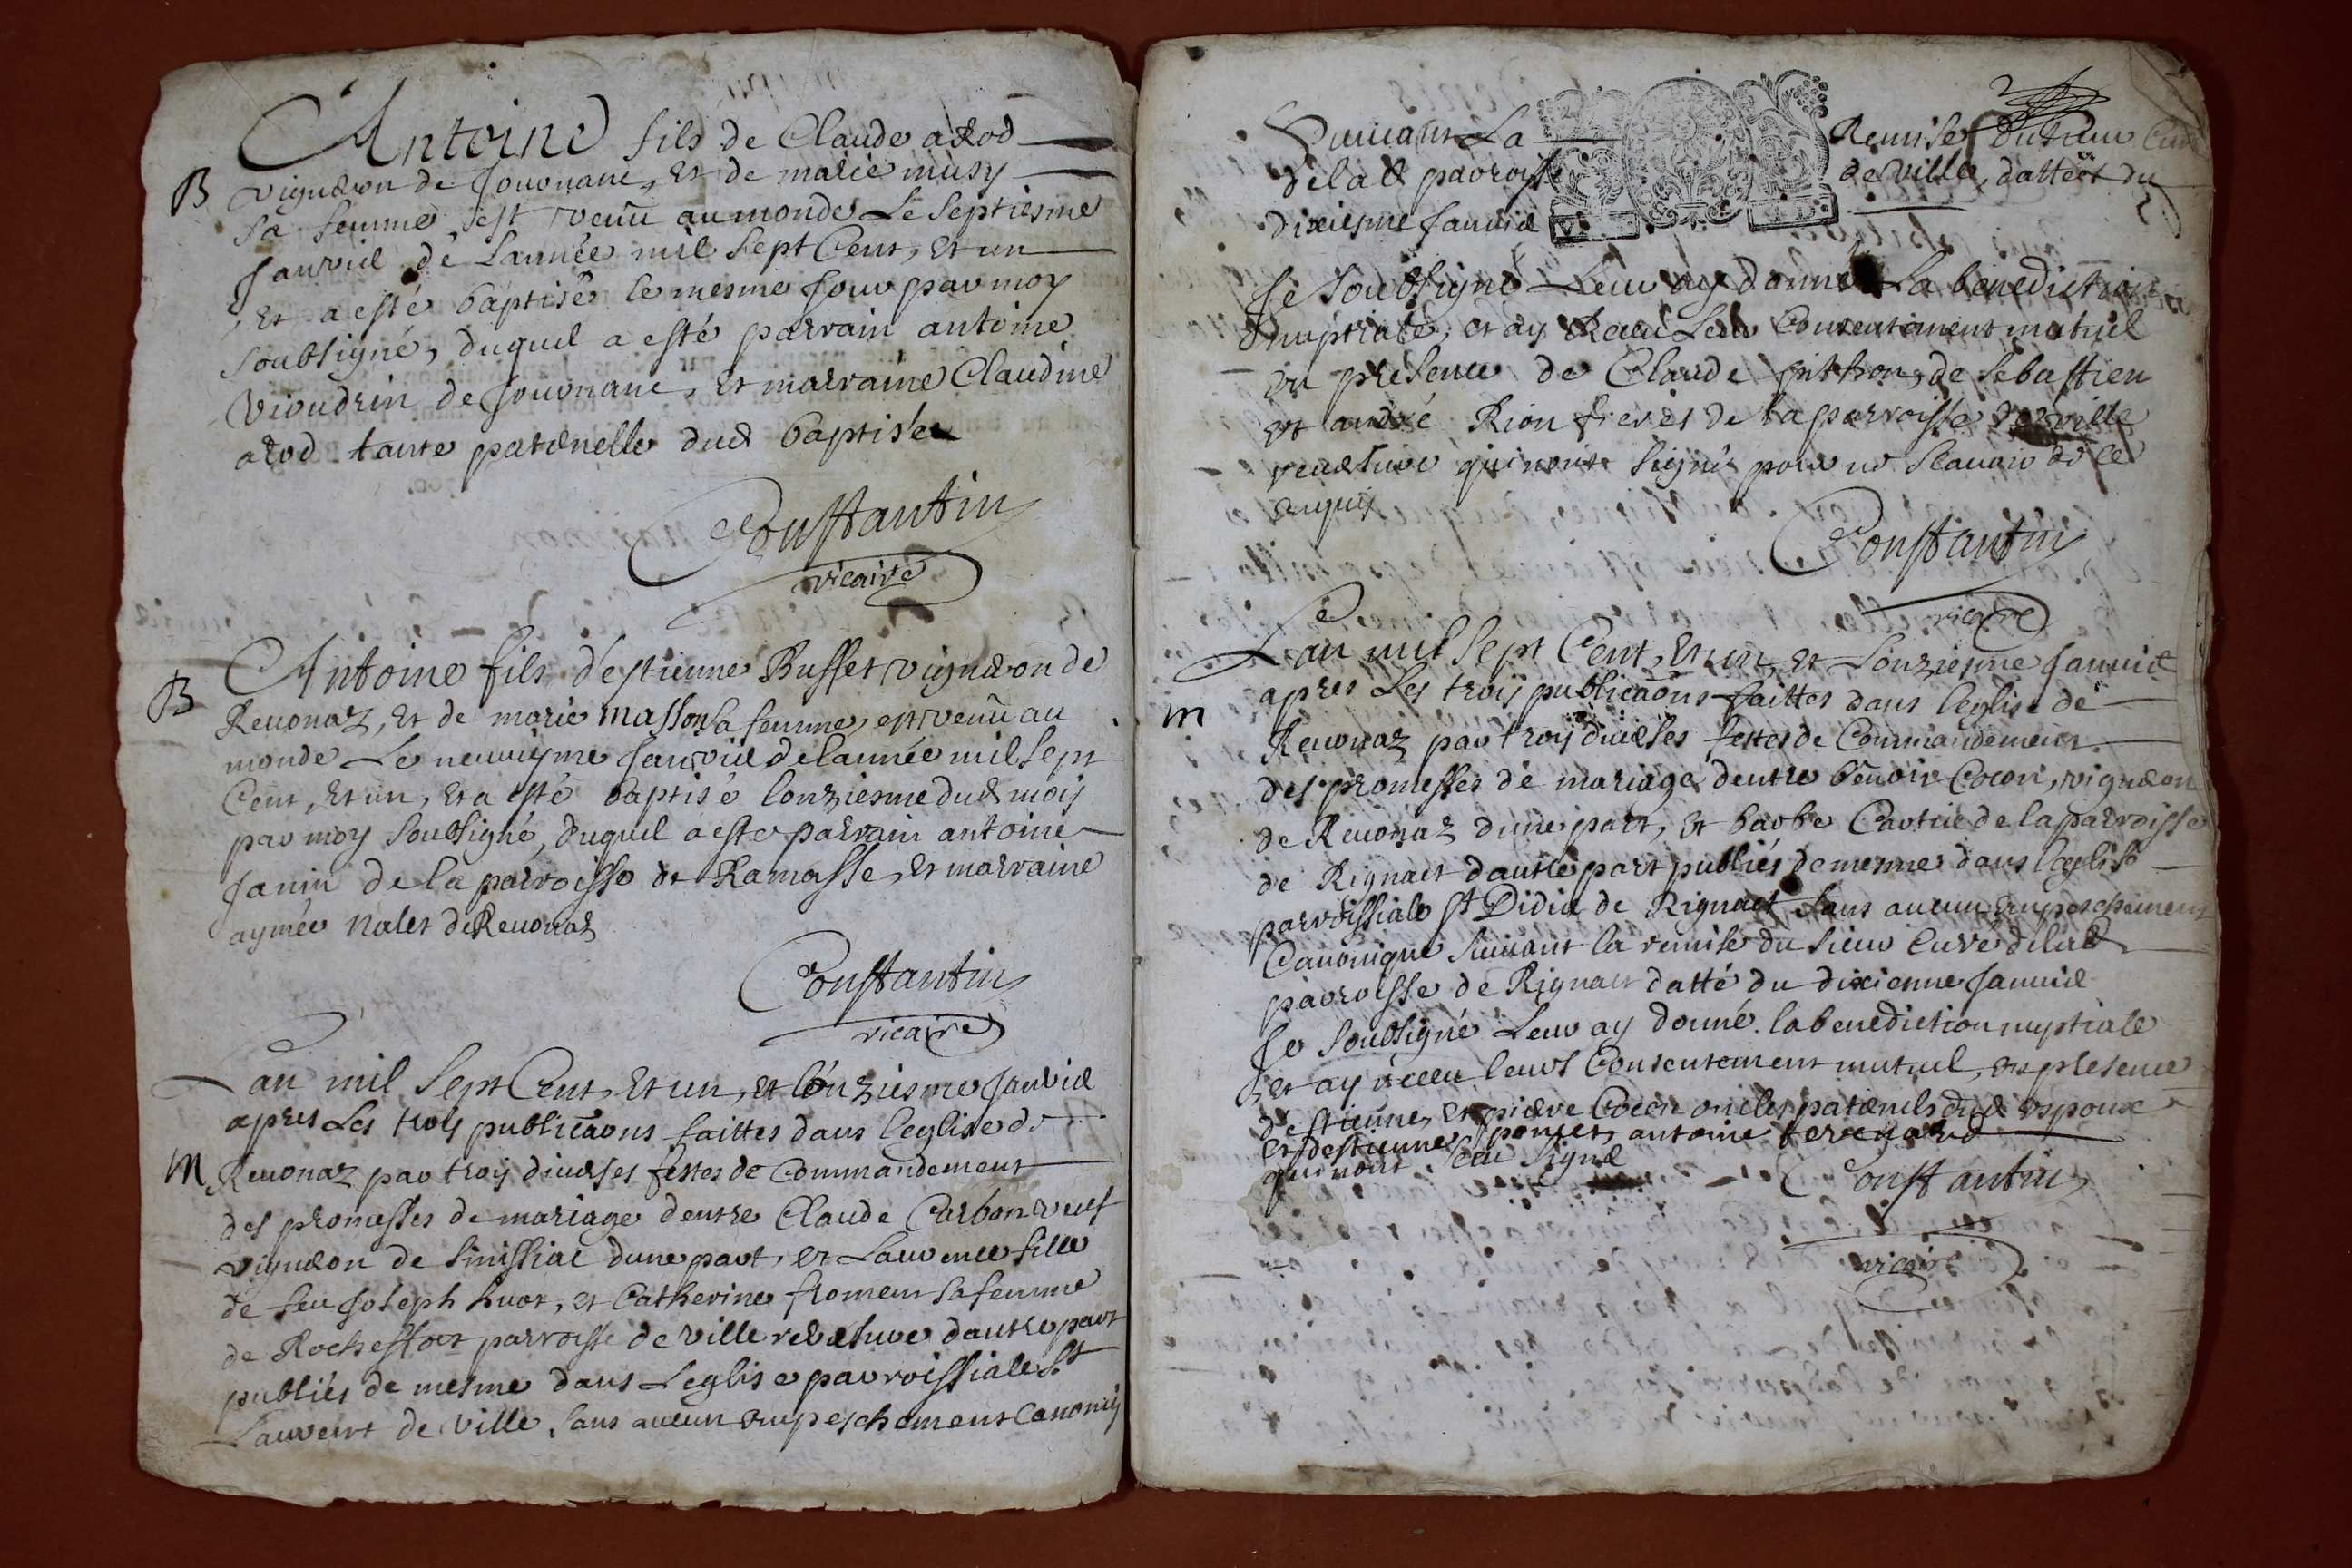 Antoine fils de Claude arod
B
vigneron de Jouvnanc, et de marie musy
sa femme, est venu au monde Le septiesme
Janvier de L'année mil sept Cent, et un
et a esté baptisé le mesme Jour par moy
soubsigné, duquel a esté parrain antoine
Vioudrin de Jouvnanc, et marraine Claudine
arod tante paternelle dud baptisé
Constantin
vicaire
Antoine fils d'estienne Buffet vigneron de
B
Revonaz, et de marie masson sa femme, est venu au
monde Le neuviyme Janvier de lannée mil sept
Cent, et un, et a esté baptisé lonziesme dud mois
par moy soubsigné, duquel a esté parrain antoine
Janin de la parroisse de Ramasse, et marraine
aymée nalet de Revonaz
Constantin
vicaire
Lan mil sept Cent, et un, et lonziesme Janvier
apres Les trois publicaons faittes dans leglise de
M
Revonaz par trois diverses festes de Commandement
des promesses de mariage dentre Claude Carbon veuf
vigneron de Sinissiat dune part, et Laurence fille
de feu Joseph huot, et Catherine froment sa femme
de Rochefort parroisse de ville reverture dautre part
publiés de mesme dans Leglise parroissiale St
Laurent de ville sans aucun empeschement canoniq
Suivant La Remise du sieur Curé
de lad parroisse de ville, dattée du
dixiesme Janvier
Je soubsigné Leur ay donné La benediction
nuptiale, et ay Receu Leur Consentement mutuel
en presence de Claude pithon, de sebastien
et andré Rion freres de la parroisse de ville
reverture qui nont signé pour ne scavoir de ce
enquis
Constantin
vicaire
Lan mil sept Cent, et un, et Lonzienne Janvier
apres Les trois publicaons faittes dans leglise de
m
Revonaz par trois diverses festes de Commandement
des promesses de mariage dentre benoit Cocon, vigneron
de Revonaz dune part, et barbe Cartier de la parroisse
de Rignact dautre part publiés de mesme dans leglise
parroissiale St Didier de Rignact sans aucun empeschement
Canonique suivant la remise du sieur Curé de lad
parroisse de Rignact datté du dixienne Janvier
Je soubsigné Leur ay donné la benediction nuptiale
et ay receu leurs Consentement mutuel, en presence
destienne, et pierre Cocon oncles paternels dud espoux
et destienne ponset, antoine terenard
qui nont sceu signer
Constantin
vicaire